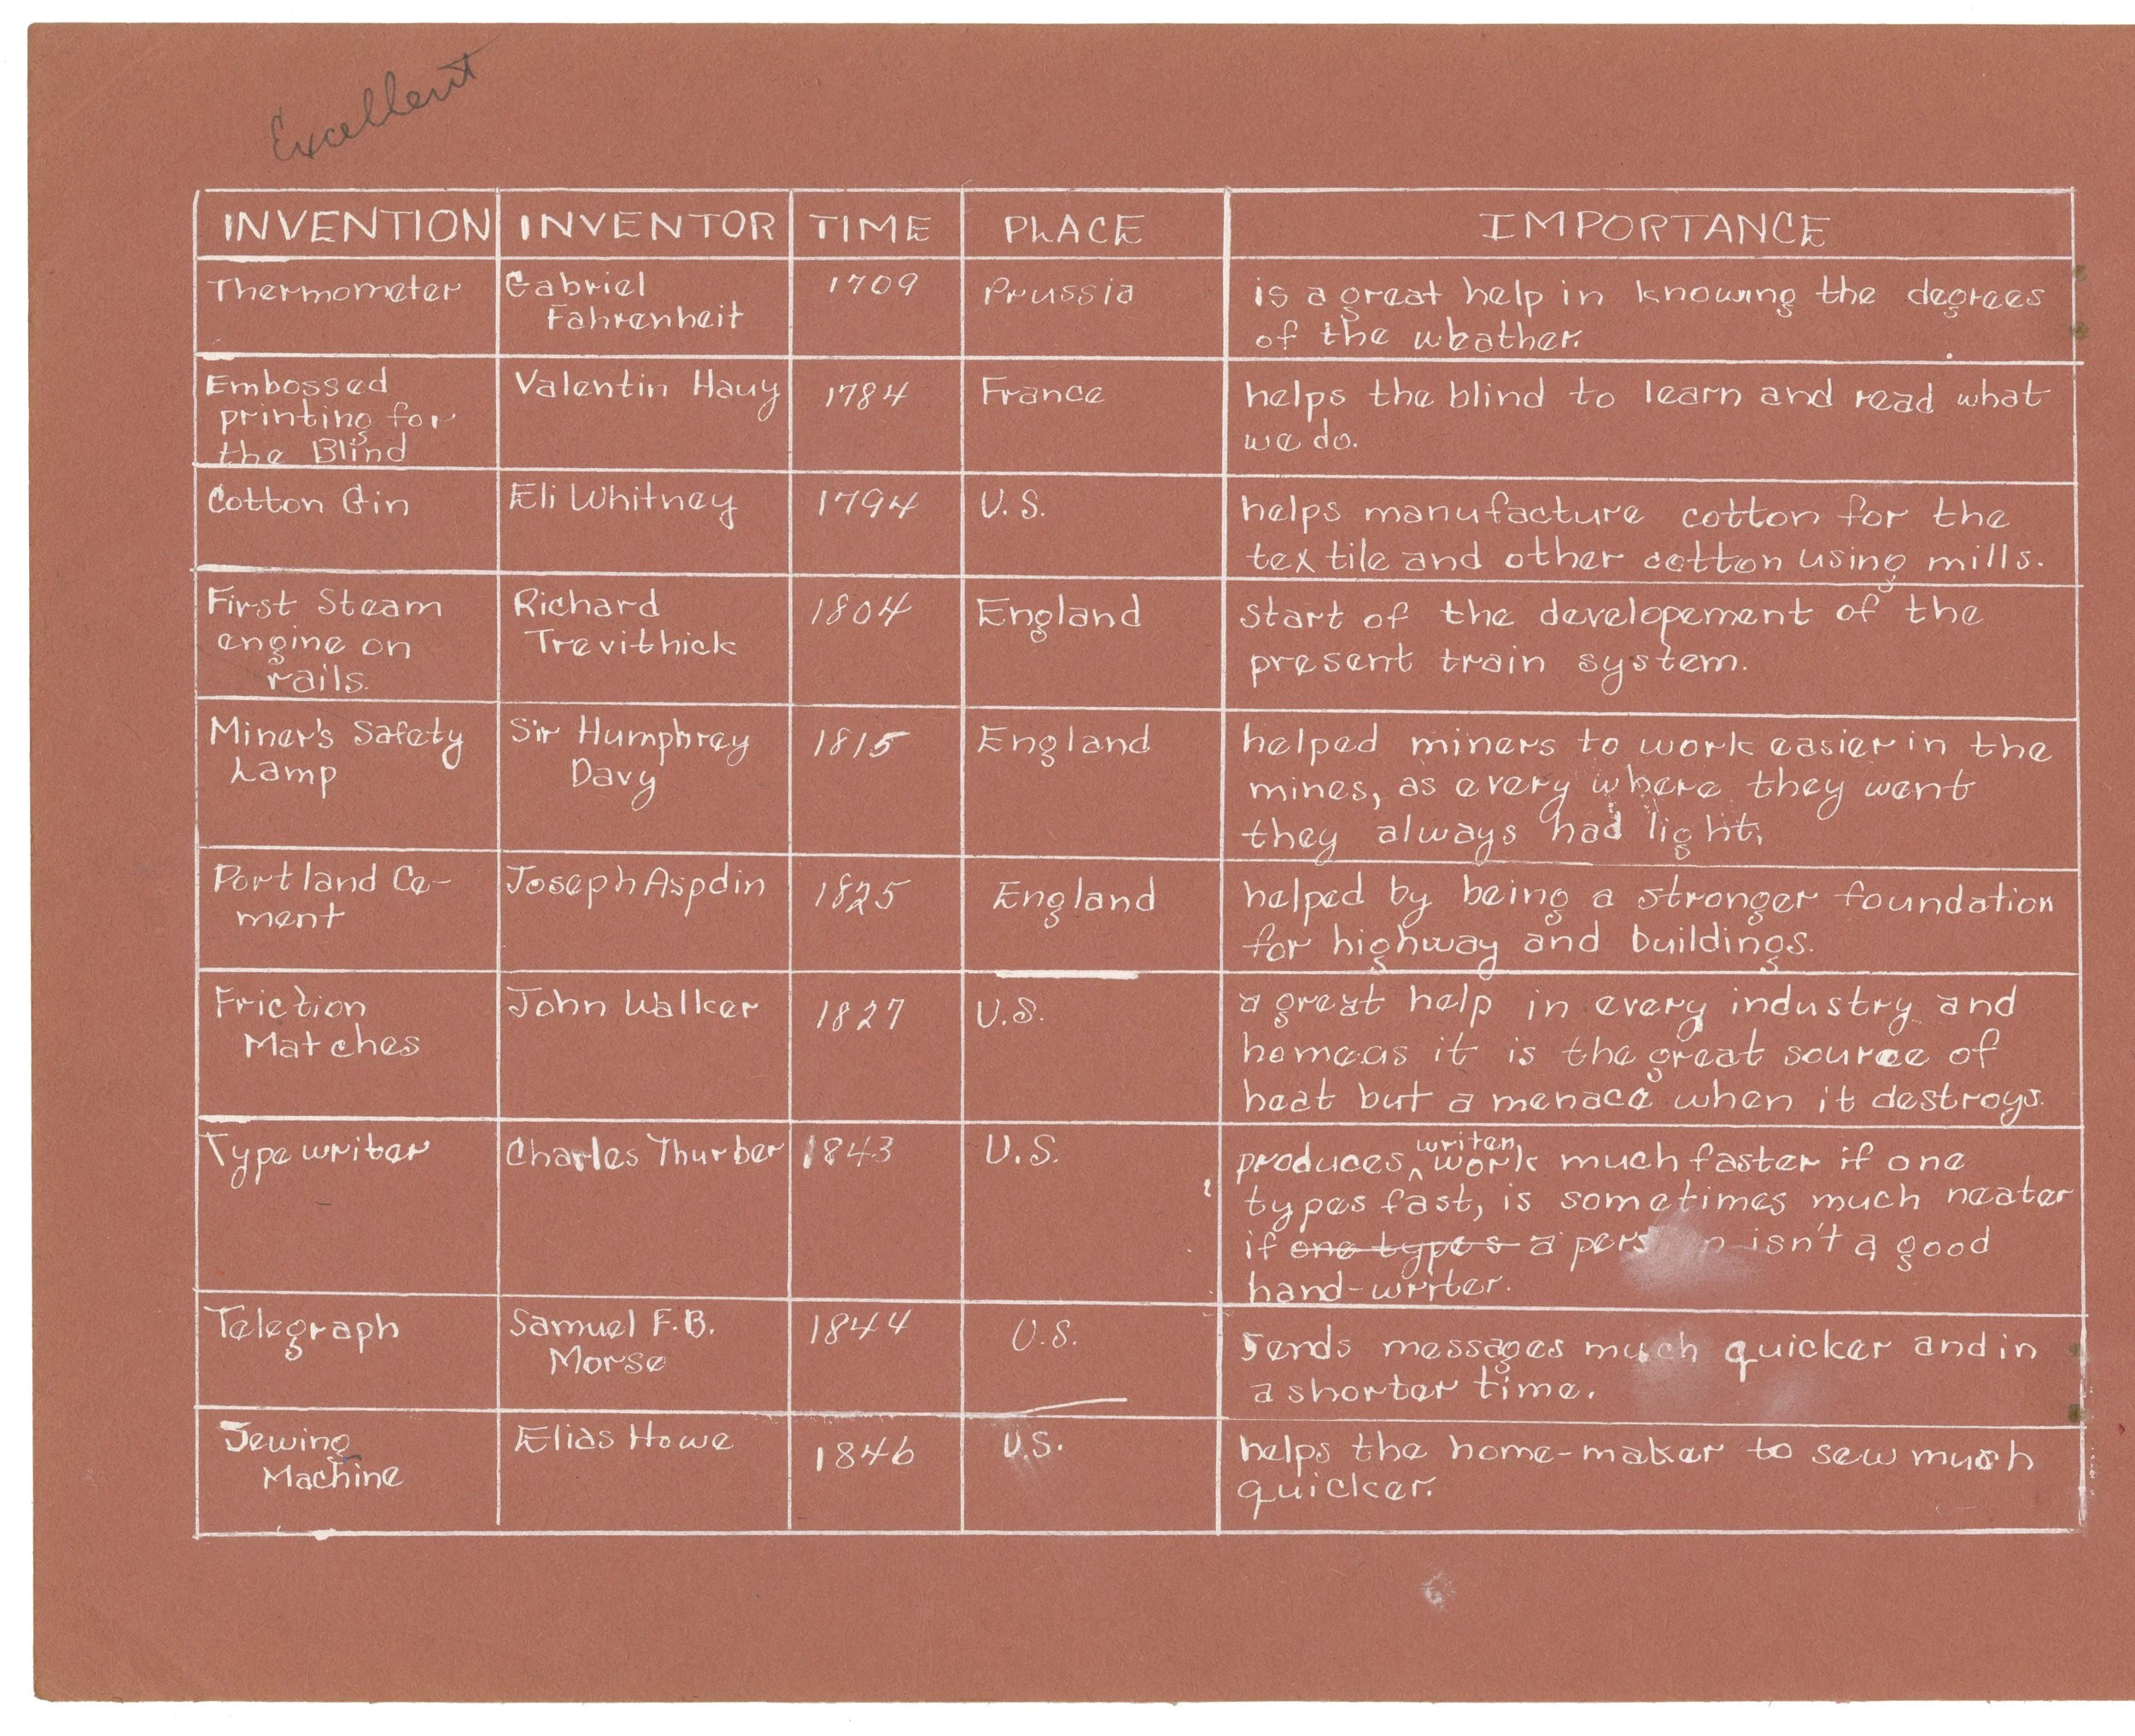 Excellent
INVENTION INVENTOR TIME PLACE IMPORTANCE
Thermometer Gabriel 1709 Prussia is a great help in knowing the degrees
Fahrenheit of the weather.
Embossed Valentin Hauy 1784 France helps the blind to learn and read what
printing for we do.
the Blind
Cotton Gin Eli Whitney 1794 U.S. helps manufacture cotton for the
textile and other cotton using mills.
First Steam Richard 1804 England start of the developement of the
engine on Trevithick present train system.
rails.
Miner's Safety Sir Humphrey 1815 England helped miners to work easier in the
Lamp Davy mines, as every where they went
they always had light,
Portland Ce- Joseph Aspdin 1825 England helped by being a stronger foundation
ment for highway and buildings.
Friction John Walker 1827 U.S. a great help in every industry and
Matches home as it is the great source of
heat but a menace when it destroys.
Typewriter Charles Thurber 1843 U.S. produces writen work much faster if one
types fast, is sometimes much neater
if one types a person isn't a good
hand-writer.
Telegraph Samuel F.B. 1844 U.S. Sends messages much quicker and in
Morse a shorter time.
Sewing Elias Howe 1846 U.S. helps the home-maker to sew much
Machine quicker.